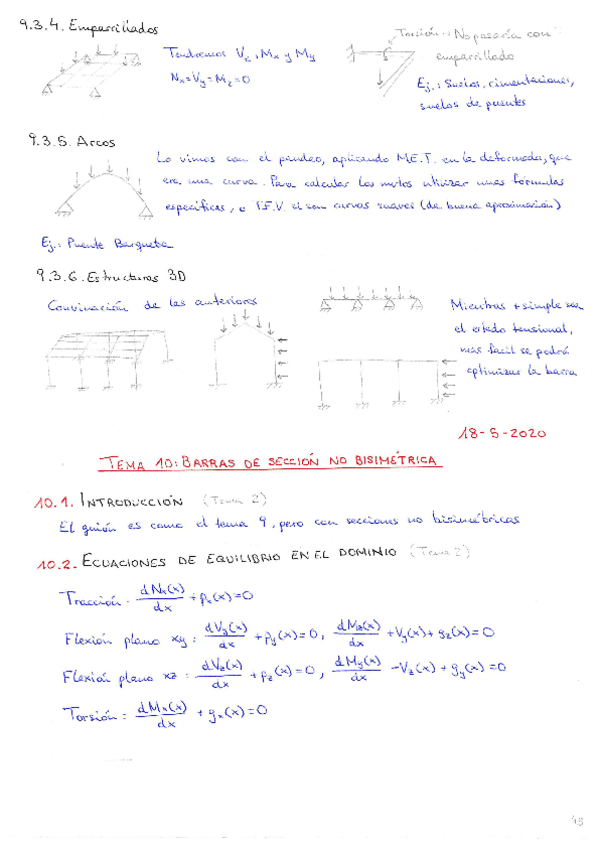 9.3.4. Emparrillados
Tendremos Vz, Mx y My
Nx=Vy=Mz=0
Torsión → No pasaría con
emparrillado
Ej.: Suelos, cimentaciones,
suelos de puentes
9.3.5. Arcos
Lo vimos con el pandeo, aplicando M.E.T. en la deformada, que
era una curva. Para calcular los motos utilizar unas fórmulas
específicas, o T.F.V si son curvas suaves (da buena aproximación)
Ej.: Puente Barqueta
9.3.6. Estructuras 3D
Convinación de las anteriores
Mientras + simple sea
el estado tensional,
más facil se podrá
optimizar la barra
18-5-2020
TEMA 10: BARRAS DE SECCIÓN NO BISIMÉTRICA
10.1. INTRODUCCIÓN (Tema 2)
El guión es como el tema 9, pero con secciones no bisimétricas
10.2. ECUACIONES DE EQUILIBRIO EN EL DOMINIO (Tema 2)
Tracción: dNx(x)/dx + px(x)=0
Flexión plano xy: dVy(x)/dx + py(x)=0, dMz(x)/dx +Vy(x)+qz(x)=0
Flexión plano xz: dVz(x)/dx + pz(x)=0, dMy(x)/dx -Vz(x)+qy(x)=0
Torsión: dMx(x)/dx + qx(x)=0
49